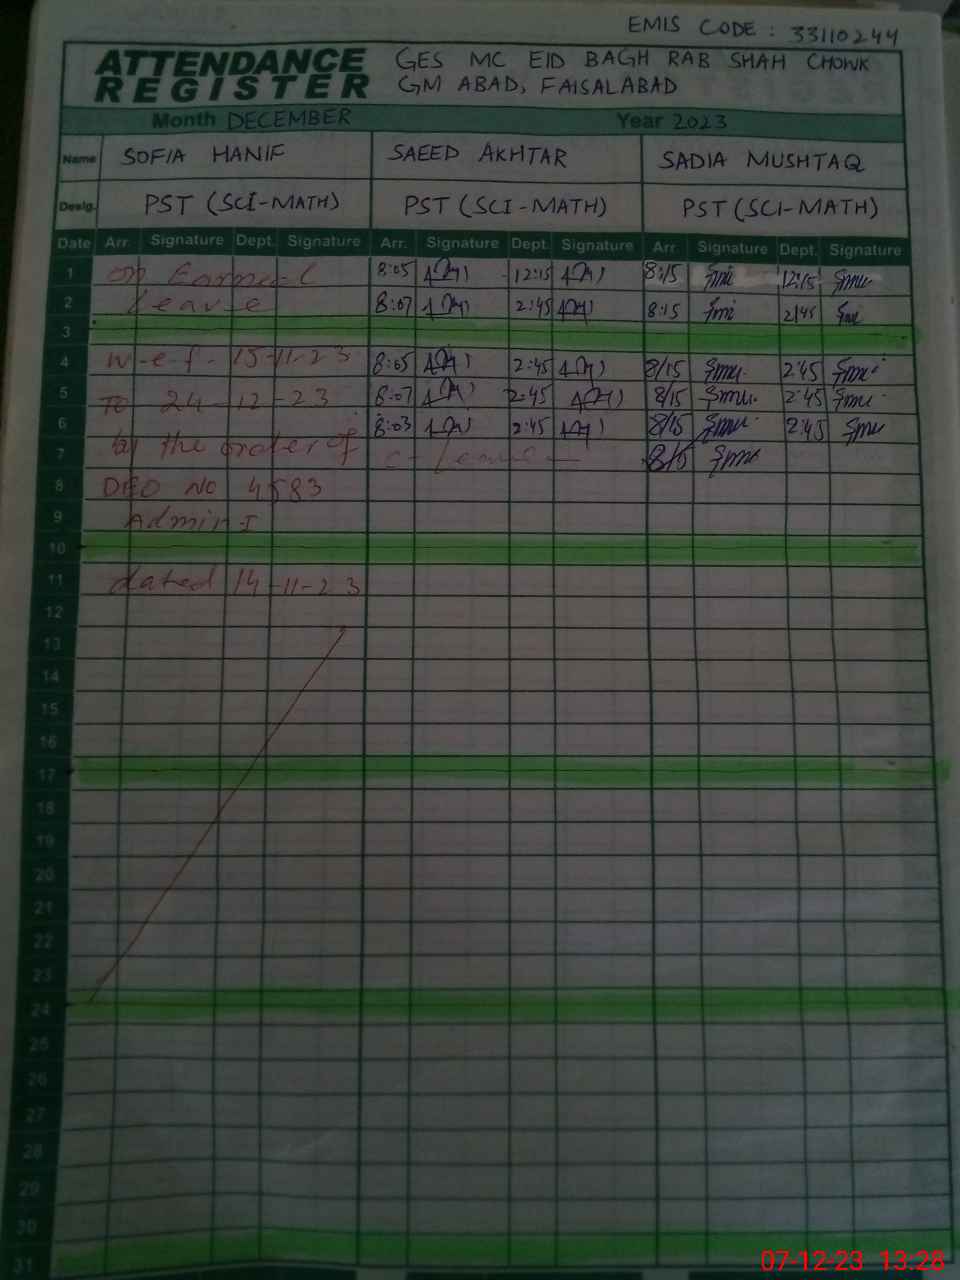 EMIS CODE : 33110244
ATTENDANCE REGISTER
GES MC EID BAGH RAB SHAH CHOWK
GM ABAD, FAISALABAD
Month DECEMBER Year 2023
Name SOFIA HANIF SAEED AKHTAR SADIA MUSHTAQ
Desig. PST (SCI-MATH) PST (SCI-MATH) PST (SCI-MATH)
Date Arr. Signature Dept. Signature Arr. Signature Dept. Signature Arr. Signature Dept. Signature
1 on Earned 8:05 12:15 8:15 12:15
2 Leave 8:07 2:45 8:15 2:45
3
4 w-e-f- 15-11-23 8:05 2:45 8/15 2:45
5 To 24-12-23 8:07 2:45 8/15 2:45
6 8:03 2:45 8/15 2:45
7 by the order of C-Leave 8/15
8 DEO NO 4583
9 Admin-I
10
11 dated 14-11-23
12
13
14
15
16
17
18
19
20
21
22
23
24
25
26
27
28
29
30
31
07-12-23 13:28